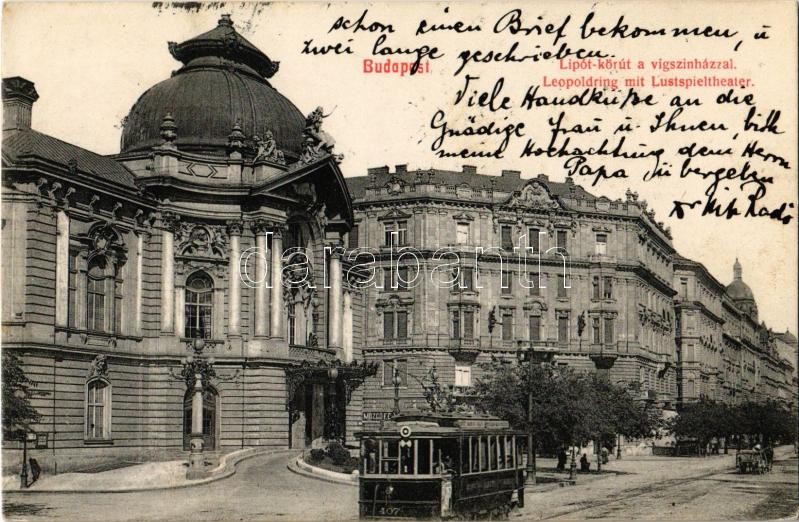 schon einen Brief bekommen, u
zwei lange geschrieben.
Budapest
Lipót-körút a vigszinházzal.
Leopoldring mit Lustspieltheater.
Viele Handküße an die
Gnädige Frau u. Ihnen, bitte
meine Hochachtung dem Herrn
Papa zu übergeben
darabanth.com
MOZGÓ
407